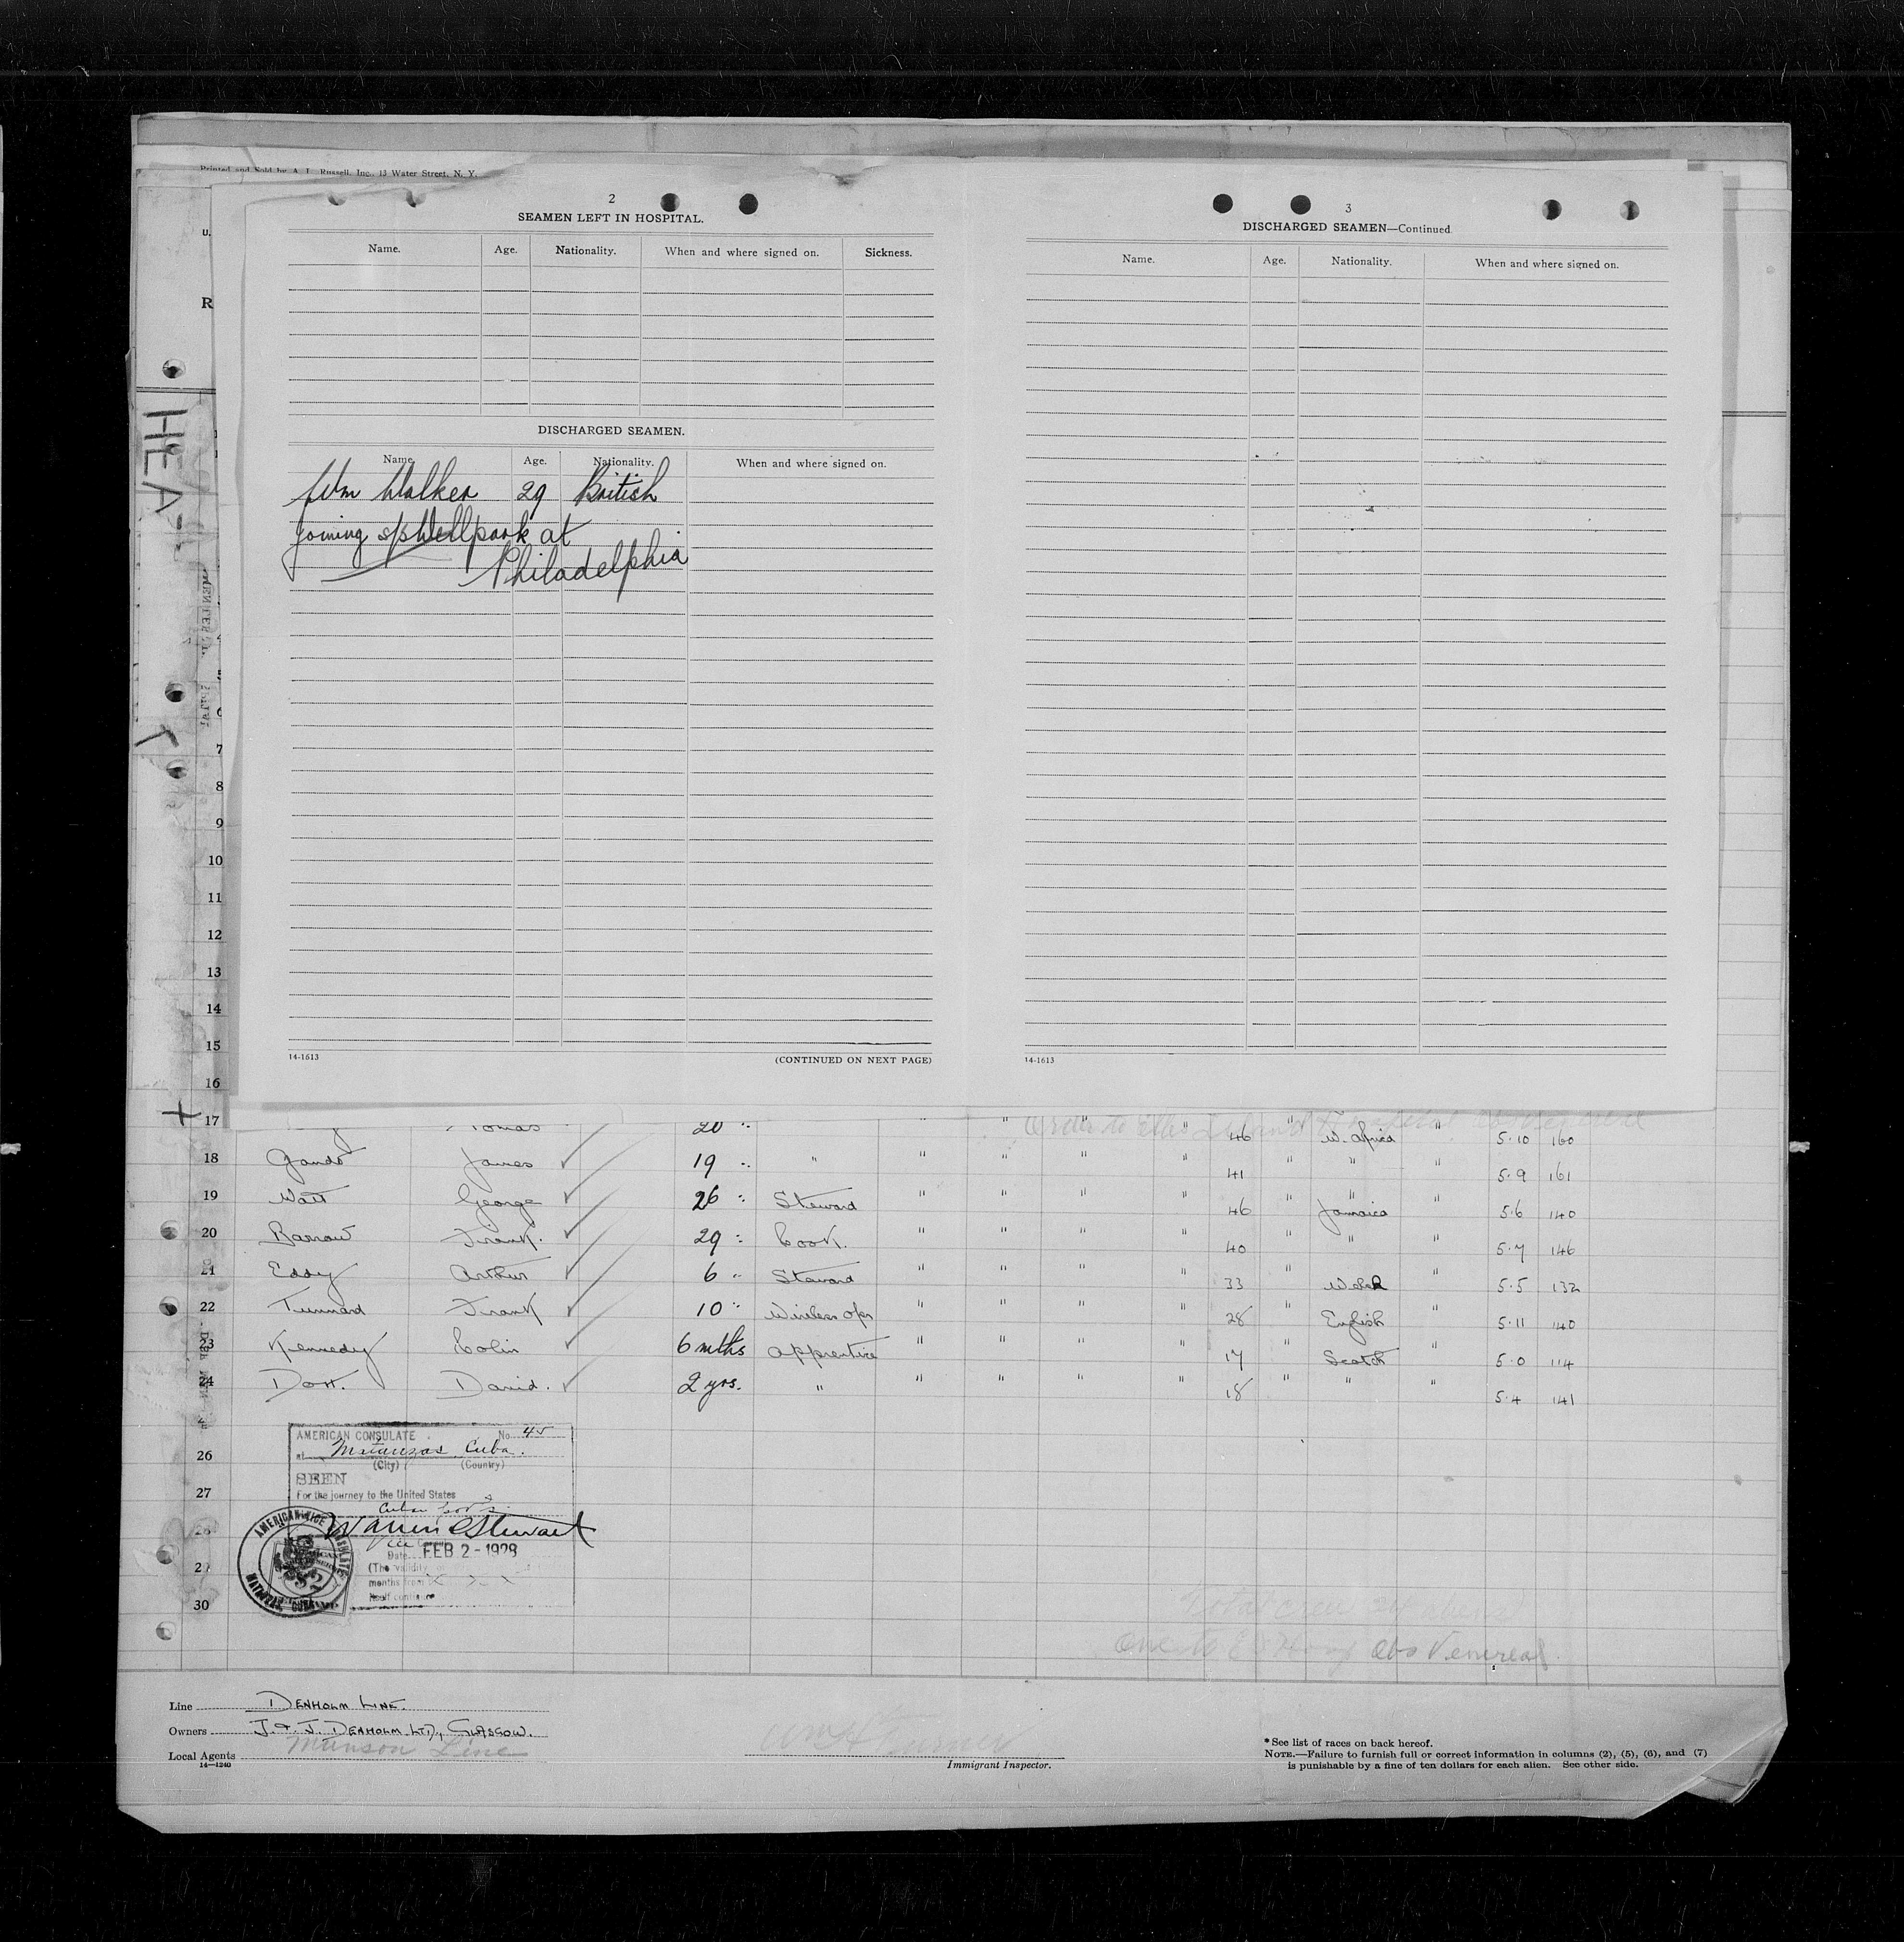 Printed and Sold by A. L. Russell, Inc., 13 Water Street, N. Y.
U.
R
HEA
2
SEAMEN LEFT IN HOSPITAL.
Name. Age. Nationality. When and where signed on. Sickness.
DISCHARGED SEAMEN.
Name. Age. Nationality. When and where signed on.
Wm Walker 29 British
joining s/s Wellpark at
Philadelphia
14-1613 (CONTINUED ON NEXT PAGE)
3
DISCHARGED SEAMEN—Continued.
Name. Age. Nationality. When and where signed on.
14-1613
7
8
9
10
11
12
13
14
15
16
17 Tomas 20 " " " " " 46 " W. Africa " 5.10 160
18 James 19 " " " " " " 41 " " " 5.9 161
19 Watt George 26 " Steward " " " " 46 " Jamaica " 5.6 140
20 Barrow Frank. 29 " Cook. " " " " 40 " " " 5.7 146
21 Eddy Arthur 6 " Steward " " " " 33 " Welsh " 5.5 132
22 Tunnard Frank 10 " Wireless Opr " " " " 28 " English " 5.11 140
23 Kennedy Colin 6 mths apprentice " " " " 17 " Scotch " 5.0 114
24 David. 2 yrs. " " " " " 18 " " " 5.4 141
26
27
28
29
30
AMERICAN CONSULATE No. 45
at Matanzas Cuba.
(City) (Country)
SEEN
For the journey to the United States
Warren C Stewart
Date FEB 2-1928
(The validity
months from
itself continue
AMERICAN VICE CONSULATE
MATANZAS, CUBA
Total crew 24 aliens
Line Denholm Line.
Owners J. & J. Denholm Ltd., Glasgow.
Local Agents Munson Line
14—1240
Immigrant Inspector.
* See list of races on back hereof.
NOTE.—Failure to furnish full or correct information in columns (2), (5), (6), and (7)
is punishable by a fine of ten dollars for each alien. See other side.